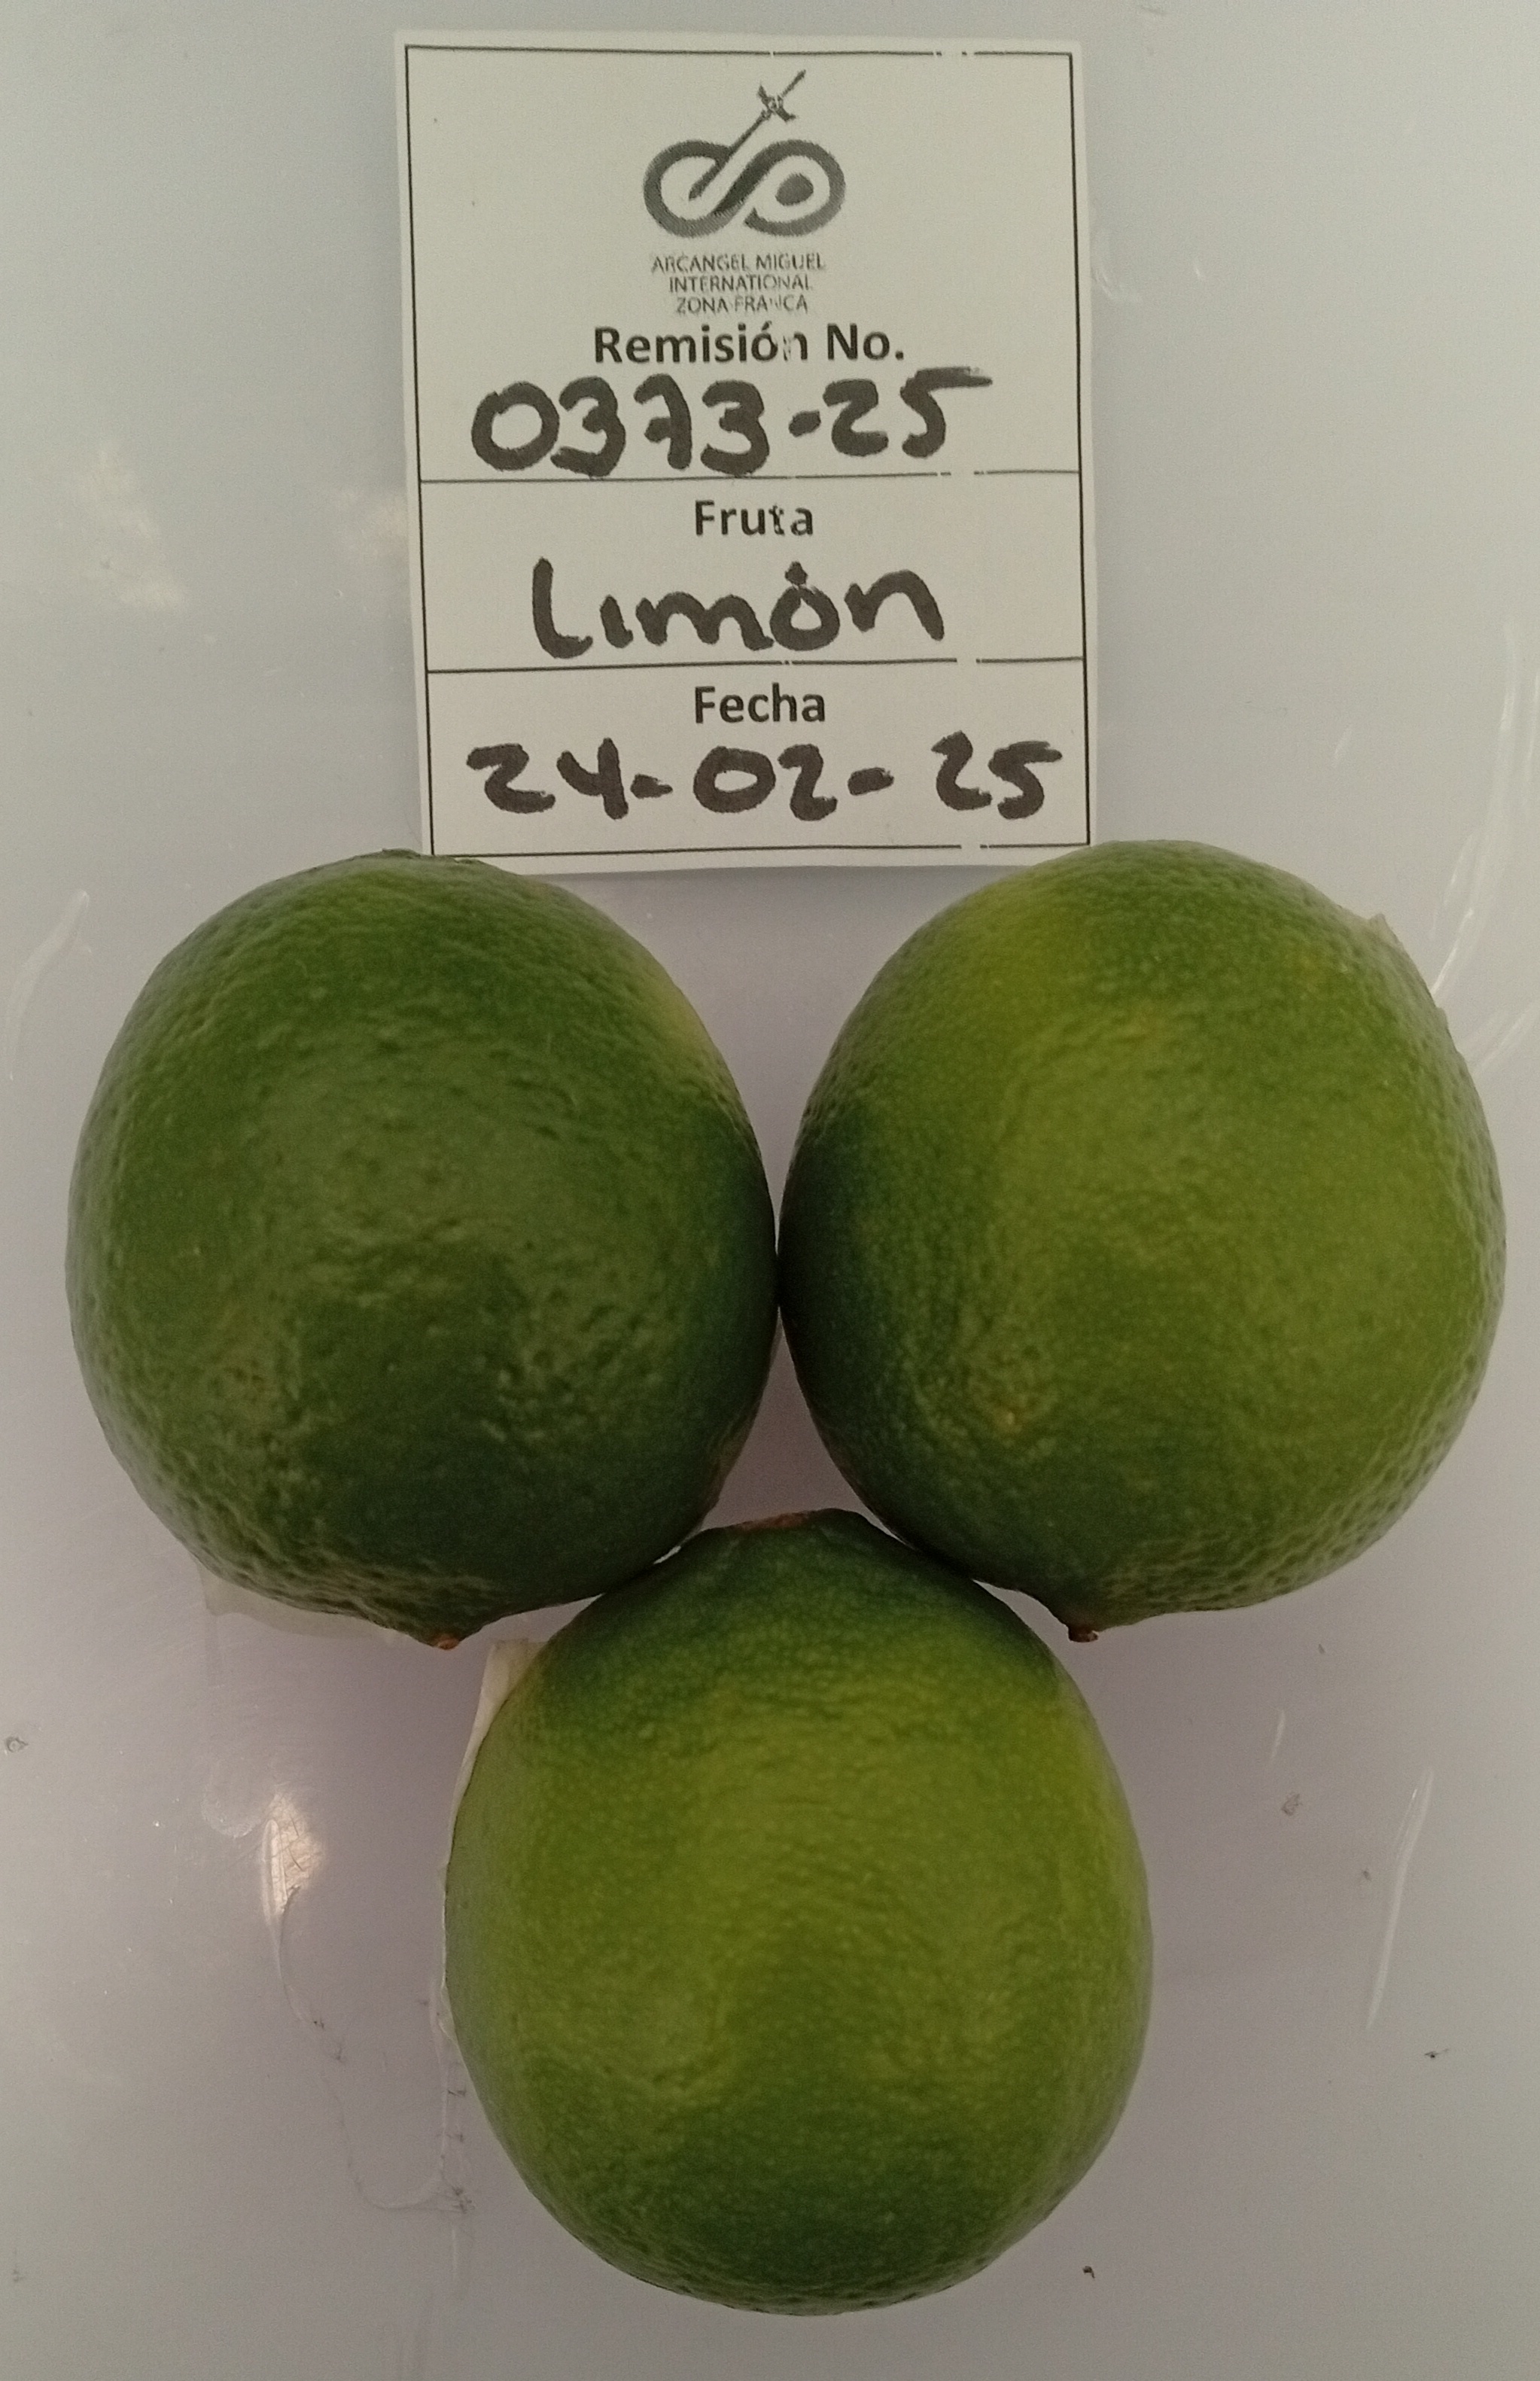 ARCANGEL MIGUEL
INTERNATIONAL
ZONA FRANCA
Remisión No.
0373-25
Fruta
Limón
Fecha
24-02-25